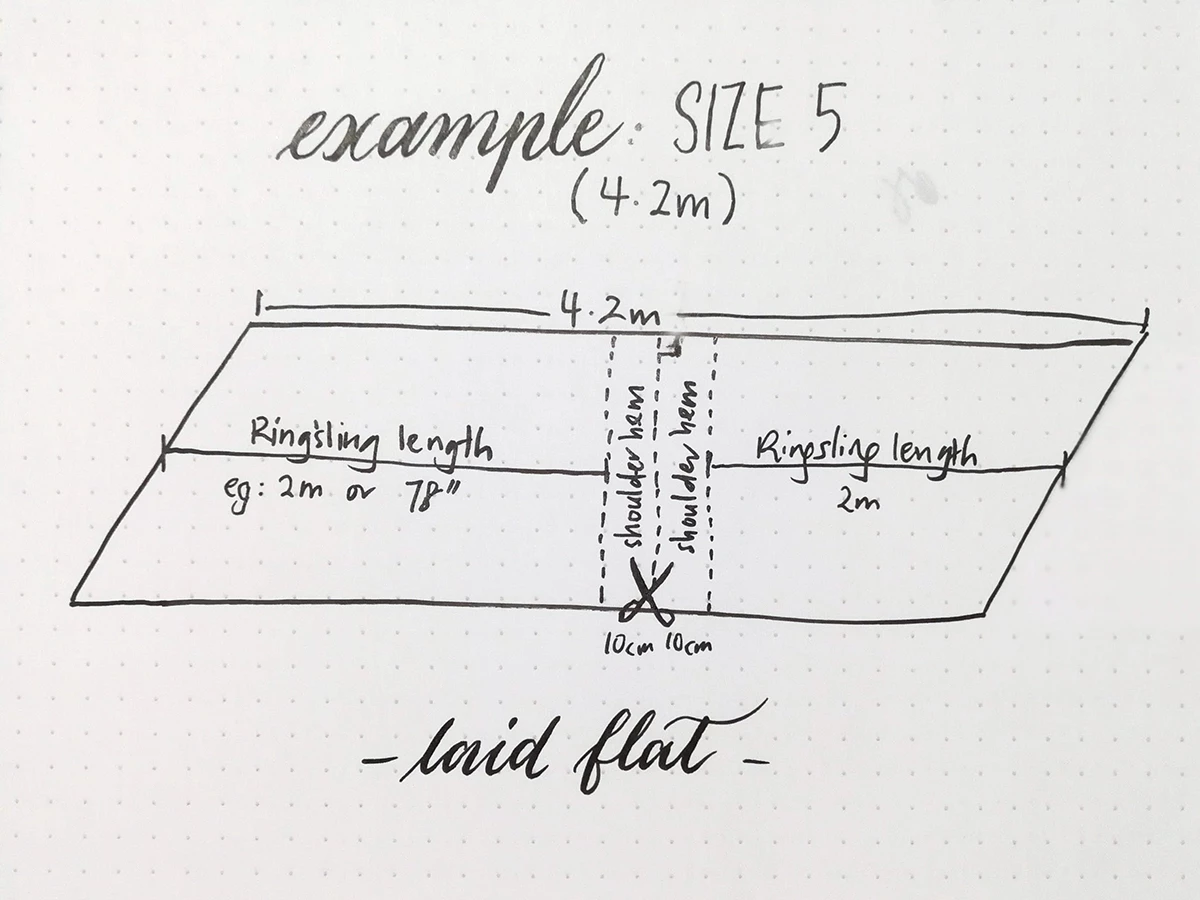 example: SIZE 5
(4.2m)
4.2m
Ringsling length
eg: 2m or 78"
shoulder hem
shoulder hem
Ringsling length
2m
10cm 10cm
- laid flat -